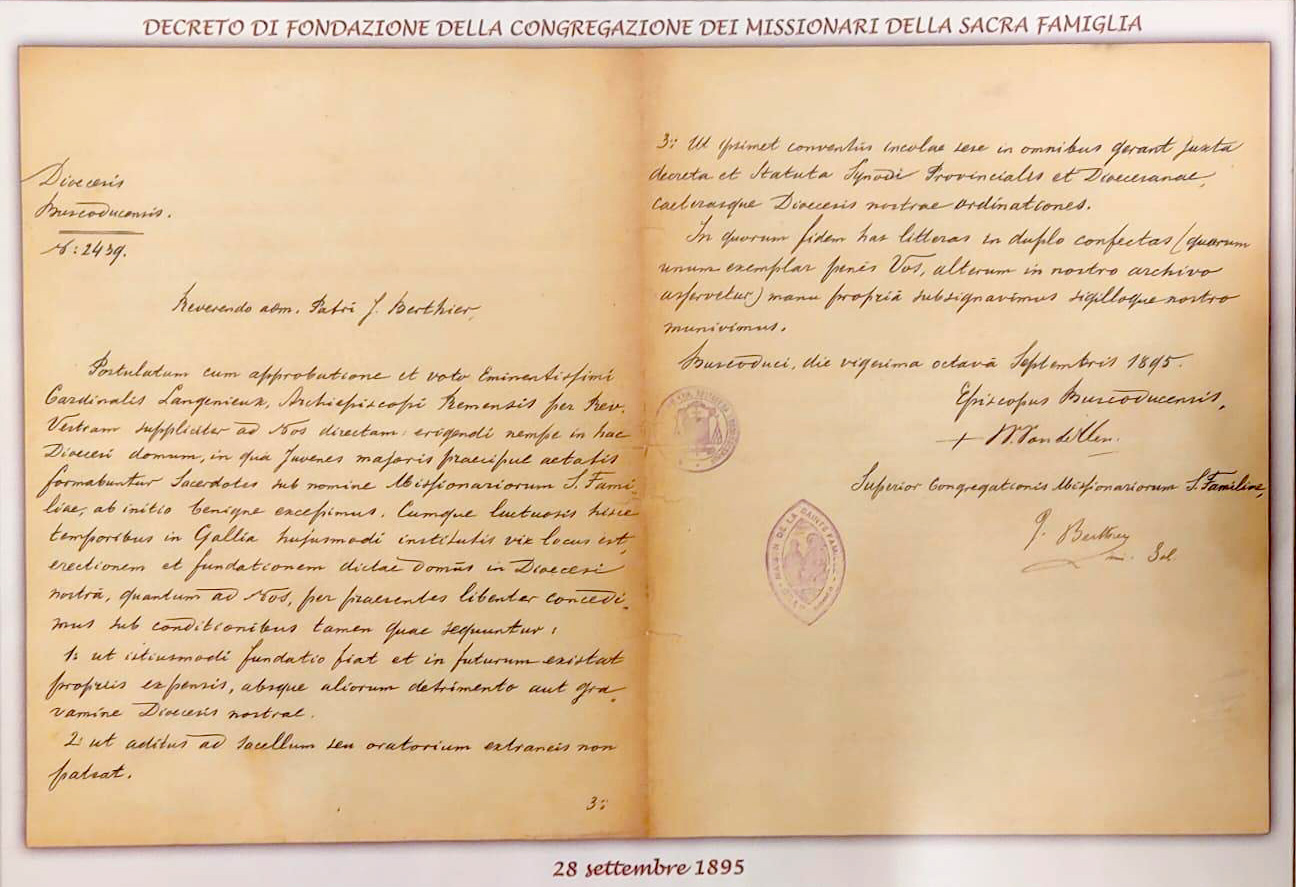 DECRETO DI FONDAZIONE DELLA CONGREGAZIONE DEI MISSIONARI DELLA SACRA FAMIGLIA
Dioecesis
Buscoducensis.
N: 2439.
Reverendo adm. Patri J. Berthier,
Postulatum cum approbatione et voto Eminentissimi
Cardinalis Langenieux, Archiepiscopi Remensis per Rev.
Vestram suppliciter ad Nos directam: erigendi nempe in hac
Dioecesi domum, in quâ Juvenes majoris praecipue aetatis
formabuntur Sacerdotes sub nomine Missionariorum S. Fami-
liae, ab initio benigne excepimus. Cumque luctuosis hisce
temporibus in Gallia hujusmodi institutis vix locus est,
erectionem et fundationem dictae domûs in Dioecesi
nostrâ, quantum ad Nos, per praesentes libenter concedi-
mus sub conditionibus tamen quae sequuntur:
1: ut istiusmodi fundatio fiat et in futurum existat
propriis expensis, absque aliorum detrimento aut gra-
vamine Dioecesis nostrae.
2: ut aditus ad sacellum seu oratorium extraneis non
pateat.
3:
3: Ut ipsimet conventûs incolae sese in omnibus gerant juxta
decreta et Statuta Synodi Provincialis et Dioecesanae,
caeterasque Dioecesis nostrae ordinationes.
In quorum fidem has litteras in duplo confectas (quarum
unum exemplar penes Vos, alterum in nostro archivo
asservetur) manu propriâ subsignavimus sigilloque nostro
munivimus.
Buscoduci, die vigesima octavâ Septembris 1895.
Episcopus Buscoducensis,
+ W. Van de Ven.
Superior Congregationis Missionariorum S. Familiae,
J. Berthier
m. Sal.
DE LA SAINTE FAM
28 settembre 1895